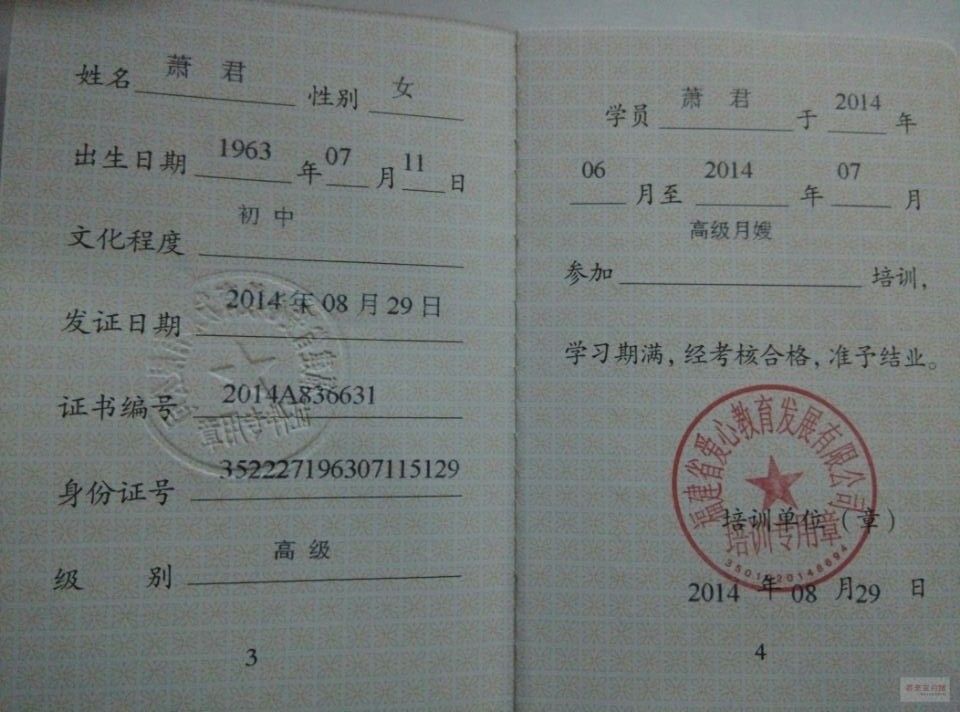 姓名 萧君 性别 女
出生日期 1963 年 07 月 11 日
文化程度 初中
发证日期 2014年08月29日
证书编号 2014A836631
身份证号 352227196307115129
级别 高级
3
学员 萧君 于 2014 年
06 月至 2014 年 07 月
参加 高级月嫂 培训,
学习期满,经考核合格,准予结业。
福建省爱心教育发展有限公司
培训单位(章)
培训专用章
2014 年 08 月 29 日
4